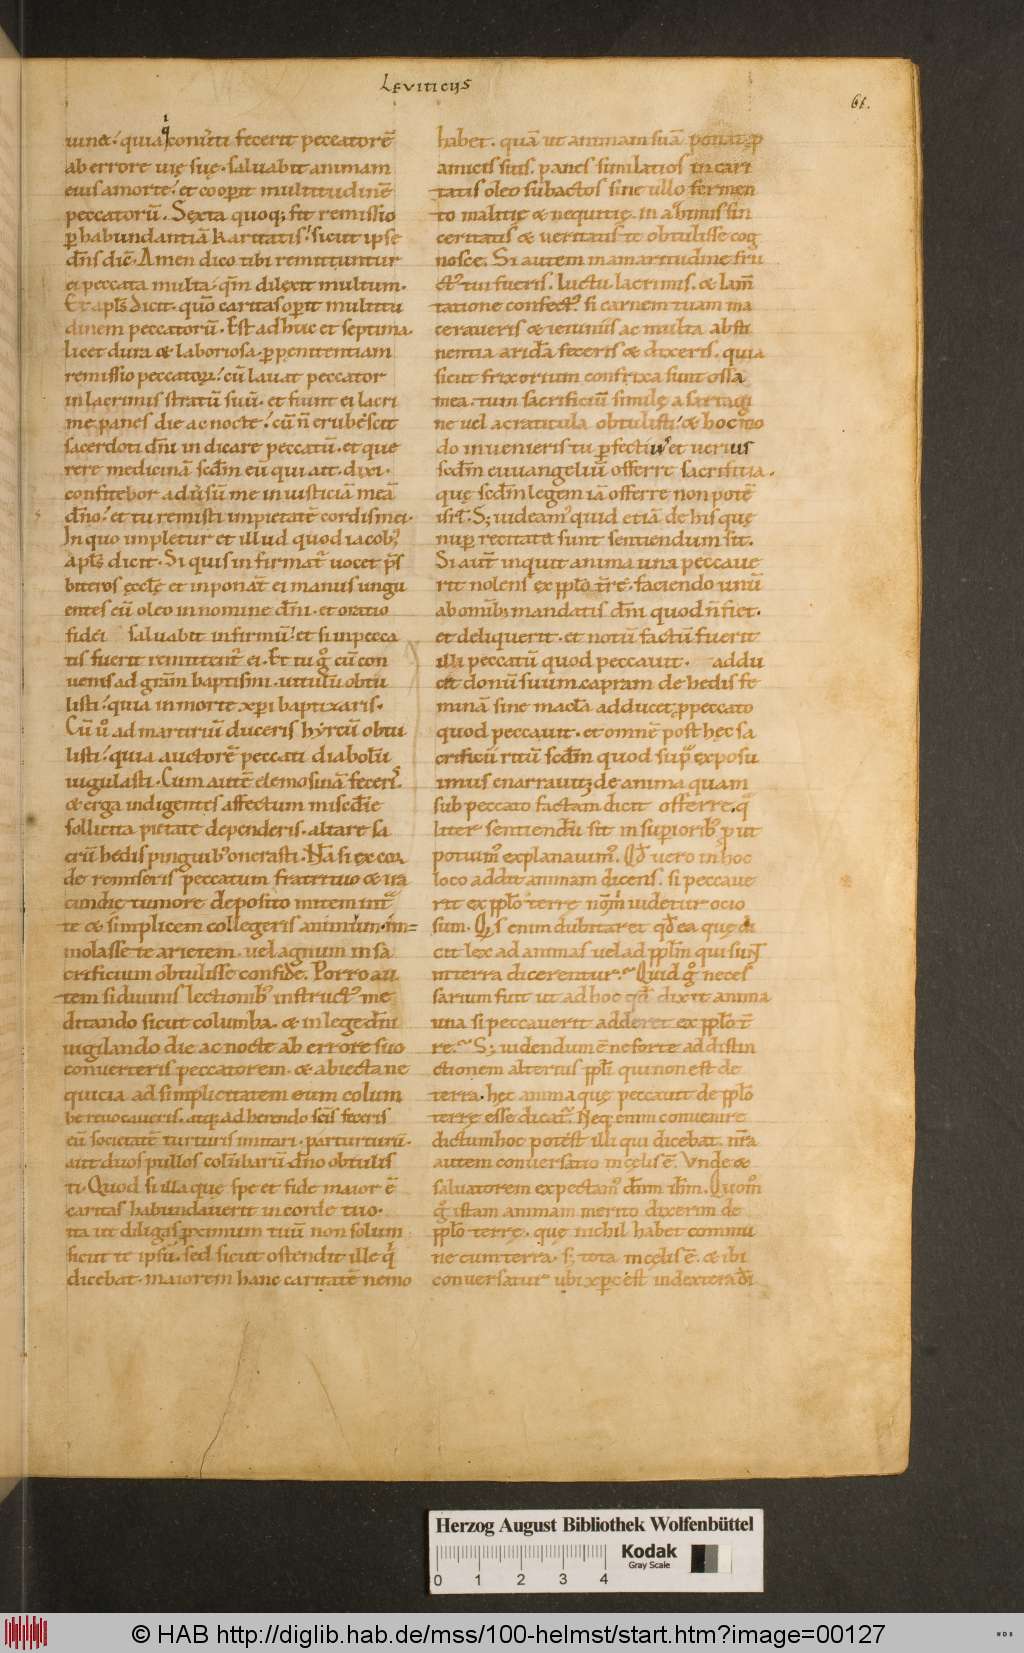 Leviticus
61.
uina: quia qui conūti fecerit peccatorē
ab errore uię suę. saluabit animam
eius a morte: et cooperit multitudinē
peccatorū. Sexta quoq; fit remissio
p habundantiā karitatis: sicut ipse
dn̄s dic̄. Amen dico tibi remittuntur
ei peccata multa. qm̄ dilexit multum.
Et apl̄s dicit. quō caritas operit multitu
dinem peccatorū. Est adhuc et septima.
licet dura & laboriosa. p penitentiam
remissio peccatoꝝ: cū lauat peccator
in lacrimis stratū suū. et fiunt ei lacri
me panes die ac nocte: cū n̄ erubescit
sacerdoti dn̄i indicare peccatū. et que
rere medicinā scd̄m eū qui ait. dixi.
confitebor aduersū me iniusticiā meā
dn̄o: et tu remisti impietatē cordis mei.
In quo impletur et illud quod iacob;
apl̄s dicit. Si quis infirmat̄ uocet p̄s
biteros eccl̄ę et inponāt ei manus ungu
entes eū oleo in nomine dn̄i. et oratio
fidei saluabit infirmū: et si in pecca
tis fuerit remittent̄ ei. Et tu g̊ cū con
uenis ad gr̄am baptismi. uitulū obtu
listi: quia in morte xp̄i baptizaris.
Cū ů ad martiriū duceris hyrcū obtu
listi: quia auctorē peccati diabolū
iugulasti. Cum autē elemosinā feceris.
& erga indigentes affectum mis̄cdię
sollicita pietate dependeris. altare sa
crū hedis pinguib; onerasti. Nā si ex cor
de remiseris peccatum fratri tuo & ira
cundię tumore deposito mitem int̄
te & simplicem collegeris animum. im=
molasse te arietem. uel agnum in sa
crificium obtulisse confide. Porro au
tem si diuinis lectionib; instruct; me
ditando sicut columba. & in lege dn̄i
uigilando die ac nocte ab errore tuo
conuerteris peccatorem. & abiecta ne
quicia ad simplicitatem eum colum
be reuocaueris. atq; adherendo scīs feceris
eū societatē turturis imitari. par turturū.
aut duos pullos colūbarū dn̄o obtulis
ti. Quod si illa que spe et fide maior ē
caritas habundauerit in corde tuo.
ita ut diligas pximum tuū non solum
sicut te ipsū. sed sicut ostendit ille q̄
dicebat. maiorem hanc caritatē nemo
habet. quā ut animam suā ponat p
amicis suis. panes similatios in cari
tatis oleo subactos sine ullo fermen
to malitię & nequitię. in azimis sin
ceritatis & ueritatis te obtulisse cog
nosce. Si autem in amaritudine fru
ct; tui fueris. luctu lacrimis. & lam̄
tatione confect; si carnem tuam ma
ceraueris & ieiuniis ac multa absti
nentia aridā feceris & dixeris. quia
sicut frixorium confrixa sunt ossa
mea. tum sacrificiū similę a sartagi
ne uel a craticula obtulisti: & hoc mo
do inuenieris tu pfectius et uerius
scd̄m euuangeliū offerre sacrificia.
quę scd̄m legem iā offerre non potē
isrl̄. S; uideam; quid etiā de his quę
nup recitata sunt sentiendum sit.
Si aut̄ inquit anima una peccaue
rit nolens ex pplo tr̄rę. faciendo unū
ab omīb; mandatis dn̄i quod n̄ fiet.
et deliquerit. et notū factū fuerit
illi peccatū quod peccauit. addu
cet donū suum capram de hedis fe
minā sine macl̄a adducet p peccato
quod peccauit. et omnē post hec sa
crificii ritū scd̄m quod sup exposu
imus enarrauit; de anima quam
sub peccato factam dicit offerre. q̄
liter sentiendū sit in superiorib; p ut
potuim; explanauim;. Qd̄ uero in hoc
loco addit animam dicens. si peccaue
rit ex pplo terre. non m̄ uidetur ocio
sum. Quis enim dubitaret qd̄ ea quę di
cit lex ad animas uel ad pplm̄ qui sunt
in terra dicerentur. Quid g̊ neces
sarium fuit ut ad hoc qd̄ dixit anima
una si peccauerit adderet ex pplo t̄
re. S; uidendum ē ne forte ad distin
ctionem alterius ppli qui non est de
terra. hęc anima quę peccauit de pplo
terre esse dicat̄. Neq; enim conuenire
dictum hoc potest illi qui dicebat. nr̄a
autem conuersatio in cęlis ē. Vnde &
saluatorem expectam; dn̄m ih̄m. Quom̊
g̊ istam animam merito dixerim de
pplo terre. quę nichil habet commu
ne cum terra. s; tota in cęlis ē. & ibi
conuersatur ubi xp̄c est in dextera dī
Herzog August Bibliothek Wolfenbüttel
Kodak
Gray Scale
0 1 2 3 4
© HAB http://diglib.hab.de/mss/100-helmst/start.htm?image=00127